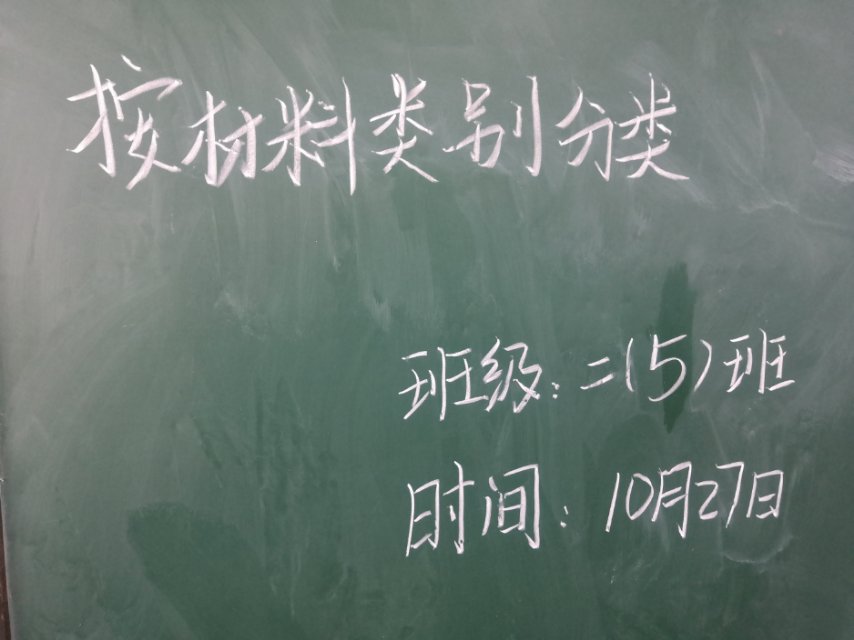 按材料类别分类
班级：二(5)班
时间：10月27日